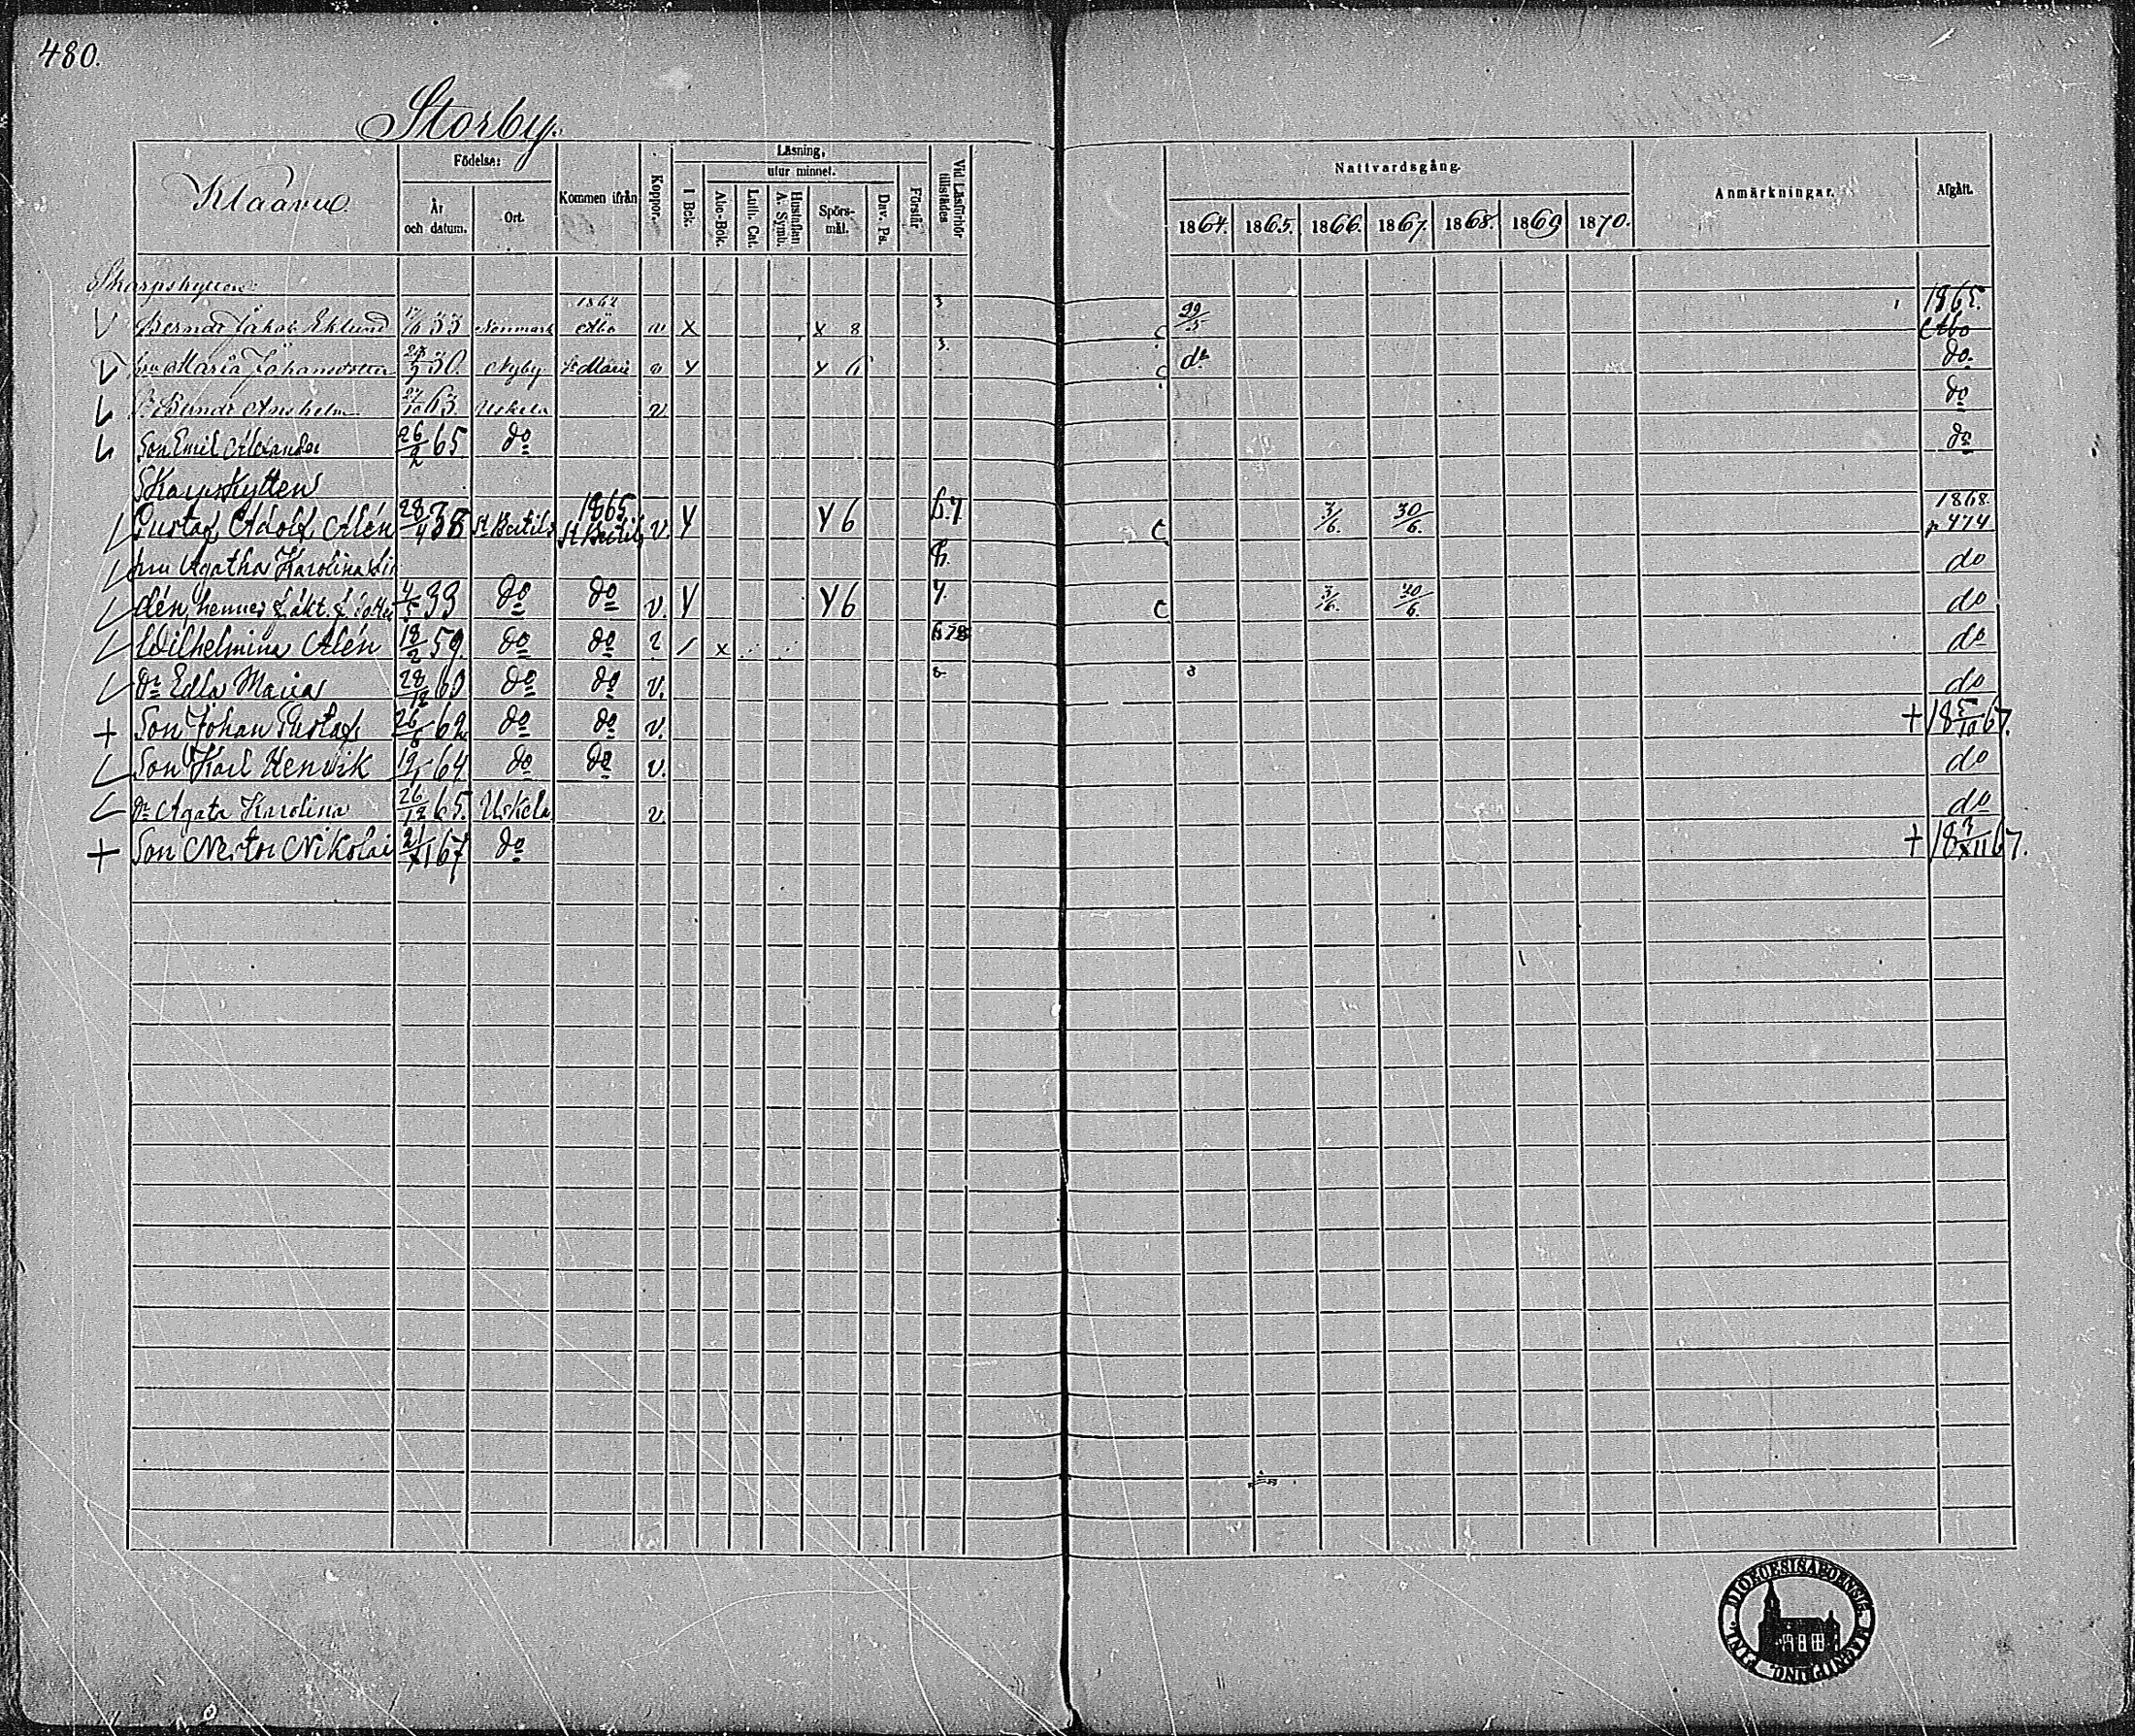 480.
Storby.
Klaavu.
Födelse:
År och datum.
Ort.
Kommen ifrån
Koppor.
Läsning,
utur minnet.
I Bok.
Abc-Bok.
Luth. Cat.
Hustaflan A. Symb.
Spörs-mål.
Dav. Ps.
Förstår
Vid Läsförhör tillstädes
Nattvardsgång.
1864. 1865. 1866. 1867. 1868. 1869 1870.
Anmärkningar.
Afgått.
Skarpskytten
Berndt Jakob Eklund 33 1862 Åbo v x x 8 3 29/5 1865. Åbo
hru Maria Johansdotter 30. Nyby St Marie v y y 6 3. do do.
S. Berndt Anshelm 27/10 63. Uskela v. do
Son Emil Alexander 26/2 65 do do
Skarpskytten
Gustaf Adolf Alén 28/4 38 St Bertils 1865 St Bertils v. y y 6 6.7 c 3/6. 30/6. 1868. p 474
hru Agatha Karolina do
lén, hennes 4/5 33 do do v. y y 6 7. c 3/6. 30/6. do
Wilhelmina Alén 18/2 59. do do 2 / x 678 do
Dr Edla Maria 28/12 60 do do v. do
+ Son Johan Gustaf 26/6 62 do do v. + 18 5/10 67.
Son Karl Henrik 19/1 64 do do v. do
Dr Agata Karolina 26/12 65. Uskela v. do
+ Son Nestor Nikolai 21/XI 67 do + 18 3/XII 67.
DIOECESIS ABOENSIS MAGNI PRINC. FINL.